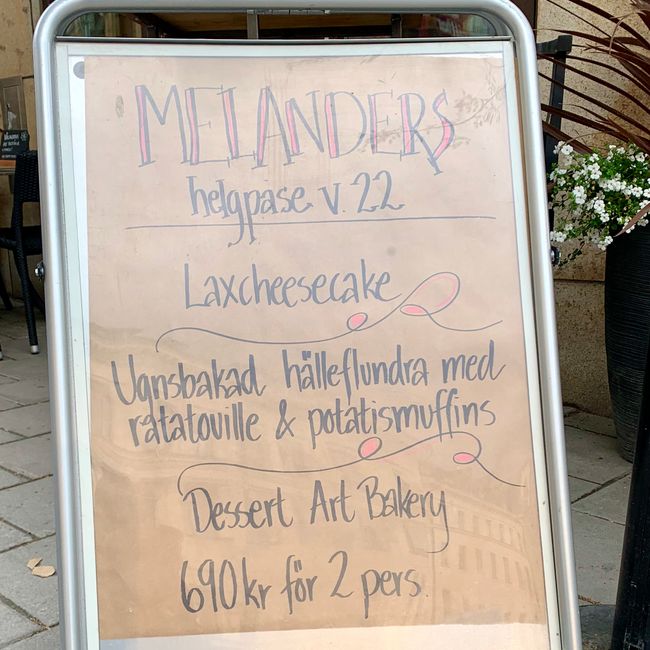 MELANDERS
helgpase v. 22
Laxcheesecake
Ugnsbakad hälleflundra med
ratatouille & potatismuffins
Dessert Art Bakery
690 kr för 2 pers.